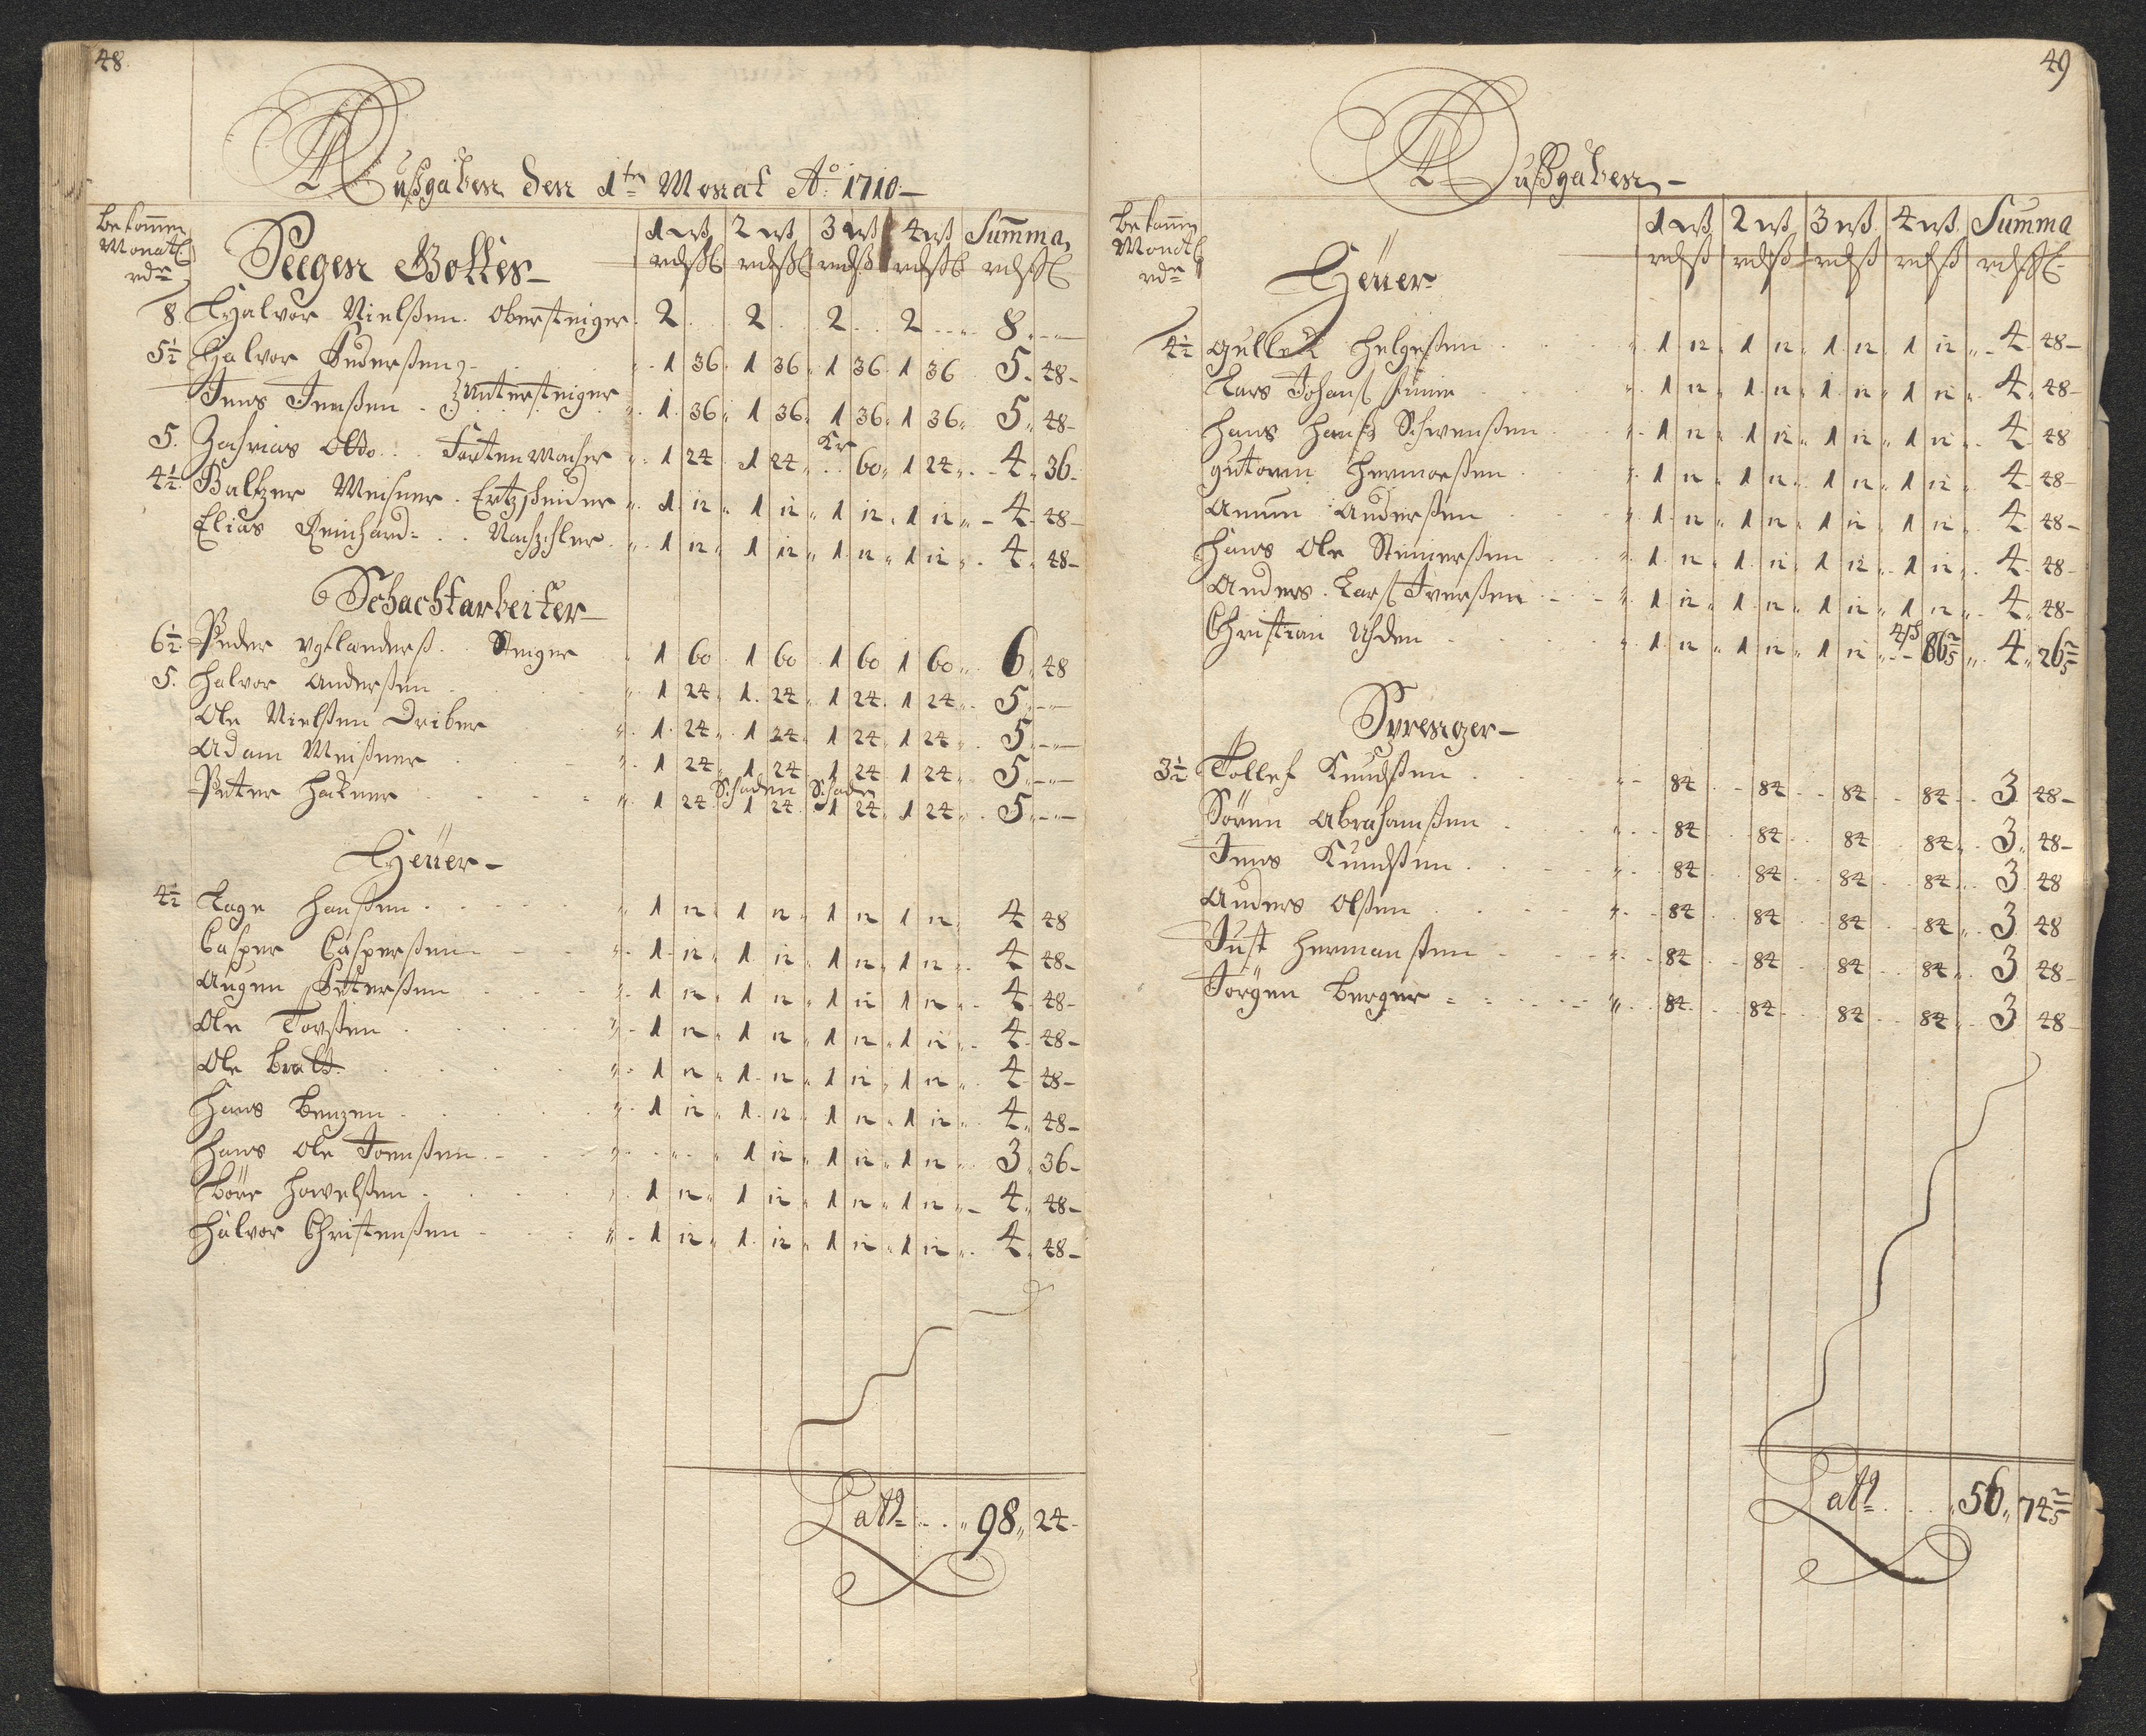 48.
Außgaben den 1ten Monat Ao. 1710.–
Bekommen Monatl. rdr
Seegen Gottes–
1 wß 2 wß 3 wß 4 wß Summa
rdß rdß rdß rdß rdß
8. Halvor Nielßen. Obersteiger. 2 . . 2 . . 2 . . 2 . . . 8. –
5½ Halvor Anderßen 1 36 1 36 1 36 1 36 5. 48–
Jens Jenßen. Untersteiger 1. 36 1 36 1 36 1 36 5. 48–
Kr
5. Zachrias Otto . . . Fartenmacher 1 24 1 24 . . 60 1 24 4. 36.
4½ Baltzer Meißner. Ertzscheider 1. 12 1 12 1 12 1 12 4. 48–
Elias Reinhard= . . Nachzehler. 1 12 1 12 1. 12 1 12 4. 48–
Schachtarbeiter–
6½ Peder Uglanderß. . Steiger 1 60 1 60 1 60 1 60 6 48
5. Halvor Anderßen 1 24 1. 24 1 24 1 24 5. –
Ole Nielßen Driber 1. 24 1 24 1 24 1 24 5. –
Adam Meißner 1 24 1. 24 1 24 1 24 5. –
Schaden Schade
Peter Hackner 1 24 1 24 1 24 1 24 5. –
Heüer–
4½ Tage Hanßen 1 12 1 12 1 12 1 12 4 48
Casper Casperßen 1. 12 1 12 1 12 1 12 4 48–
Augen Peterßen 1 12 1 12 1 12 1 12 4 48–
Ole Torßen 1 12 1 12 1 12 1 12 4 48–
Ole Bratt 1 12 1. 12 1 12 1 12 4 48–
Hans Benzen 1 12 1. 12 1 12 1 12 4. 48–
Hans Ole Joenßen 1 12 1 12 1 12 3. 36–
Böre Howelßen 1 12 1 12 1 12 1 12 4. 48–
Halvor Christenßen 1 12 1. 12 1 12 1 12 4. 48–
Lat= . . 98. 24–
49
Außgaben–
Bekommen Monatl. rdr
1 wß 2 wß 3 wß 4 wß Summa
rdß rdß rdß rdß rdß
Heüer
4½ Gulleck Helgeßen 1 12 1 12 1. 12 1 12 4 48–
Lars Johanß 1 12 1. 12 1 12 1 12 4. 48–
Hans Hanß Schwenßen 1 12 1 12 1 12 1 12 4. 48
Gutorm Hermoeßen 1 12 1 12 1 12 1 12 4. 48–
Amun Anderßen 1. 12 1 12 1 12 1 12 4. 48–
Hans Ole Steinerßen 1. 12 1. 12 1 12 1 12 4. 48–
Anders Larß Iverßen 1 12 1. 12 1 12 1 12 4. 48–
Christian Uhden 1. 12 1 12 1 12 4ß 86 2/5 4. 26 2/5
Sprenger–
3½ Tollef Knudßen 84 84 84 84 3. 48–
Sören Abrahamßen 84 84 84 84 3. 48–
Jens Knudßen 84 84 84 84 3. 48
Anders Olßen 84 84 84 84 3. 48
Just Hermanßen 84 84 84 84 3 48–
Jörgen Berger 84 84 84 84 3. 48–
Lat= . . . 56. 74 2/5